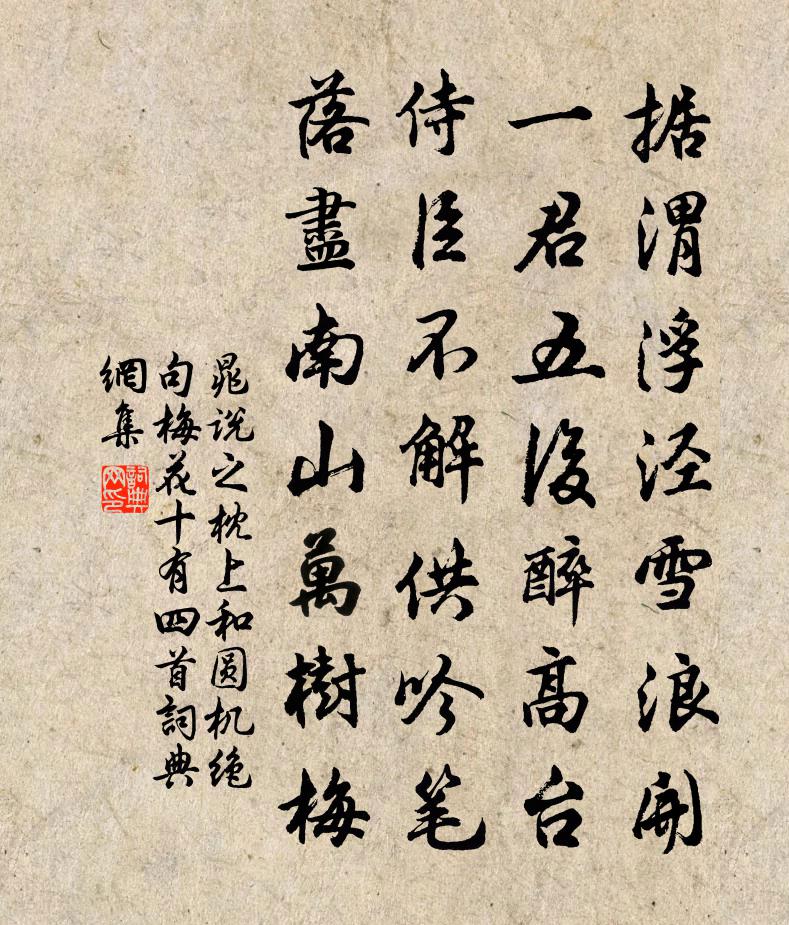 据渭浮泾雪浪開
一君五後醉高台
侍臣不解供吟笔
落盡南山萬樹梅
晁說之枕上和圆机绝
句梅花十有四首詞典
網集
詞典網印